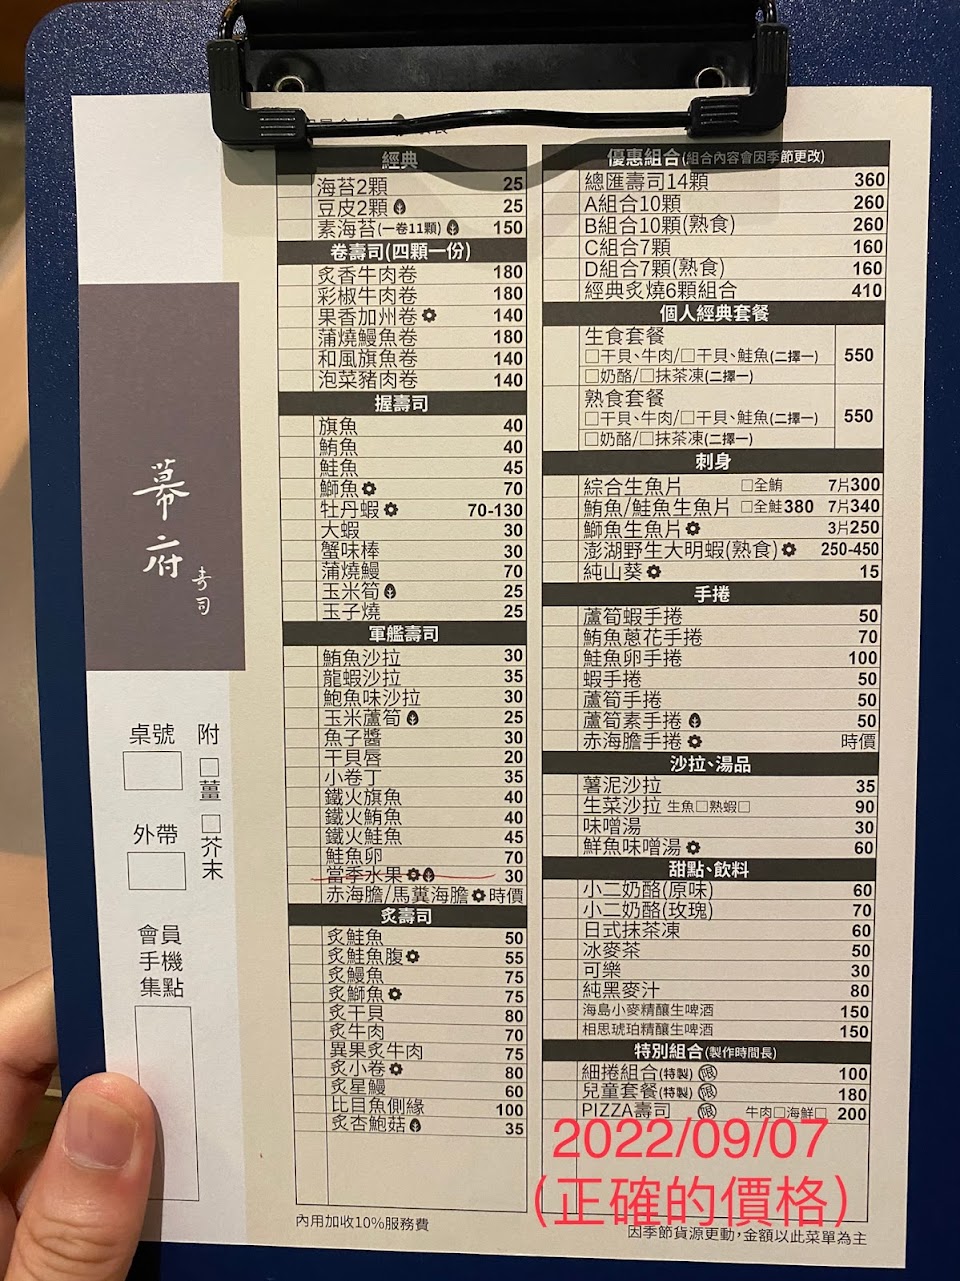 經典
海苔2顆 25
豆皮2顆 25
素海苔(一卷11顆) 150
卷壽司(四顆一份)
炙香牛肉卷 180
彩椒牛肉卷 180
果香加州卷 140
蒲燒鰻魚卷 180
和風旗魚卷 140
泡菜豬肉卷 140
握壽司
旗魚 40
鮪魚 40
鮭魚 45
鰤魚 70
牡丹蝦 70-130
大蝦 30
蟹味棒 30
蒲燒鰻 70
玉米筍 25
玉子燒 25
軍艦壽司
鮪魚沙拉 30
龍蝦沙拉 35
鮑魚味沙拉 30
玉米蘆筍 25
魚子醬 30
干貝唇 20
小卷丁 35
鐵火旗魚 40
鐵火鮪魚 40
鐵火鮭魚 45
鮭魚卵 70
當季水果 30
赤海膽/馬糞海膽 時價
炙壽司
炙鮭魚 50
炙鮭魚腹 55
炙鰻魚 75
炙鰤魚 75
炙干貝 80
炙牛肉 70
異果炙牛肉 75
炙小卷 80
炙星鰻 60
比目魚側緣 100
炙杏鮑菇 35
內用加收10%服務費
優惠組合(組合內容會因季節更改)
總匯壽司14顆 360
A組合10顆 260
B組合10顆(熟食) 260
C組合7顆 160
D組合7顆(熟食) 160
經典炙燒6顆組合 410
個人經典套餐
生食套餐 550
□干貝、牛肉/□干貝、鮭魚(二擇一)
□奶酪/□抹茶凍(二擇一)
熟食套餐 550
□干貝、牛肉/□干貝、鮭魚(二擇一)
□奶酪/□抹茶凍(二擇一)
刺身
綜合生魚片 □全鮪 7片300
鮪魚/鮭魚生魚片 □全鮭380 7片340
鰤魚生魚片 3片250
澎湖野生大明蝦(熟食) 250-450
純山葵 15
手捲
蘆筍蝦手捲 50
鮪魚蔥花手捲 70
鮭魚卵手捲 100
蝦手捲 50
蘆筍手捲 50
蘆筍素手捲 50
赤海膽手捲 時價
沙拉、湯品
薯泥沙拉 35
生菜沙拉 生魚□熟蝦□ 90
味噌湯 30
鮮魚味噌湯 60
甜點、飲料
小二奶酪(原味) 60
小二奶酪(玫瑰) 70
日式抹茶凍 60
冰麥茶 50
可樂 30
純黑麥汁 80
海島小麥精釀生啤酒 150
相思琥珀精釀生啤酒 150
特別組合(製作時間長)
細捲組合(特製) 限 100
兒童套餐(特製) 限 180
PIZZA壽司 限 牛肉□海鮮□ 200
2022/09/07
(正確的價格)
因季節貨源更動,金額以此菜單為主
幕府
壽司
桌號
附
□薑
□芥末
外帶
會員
手機
集點